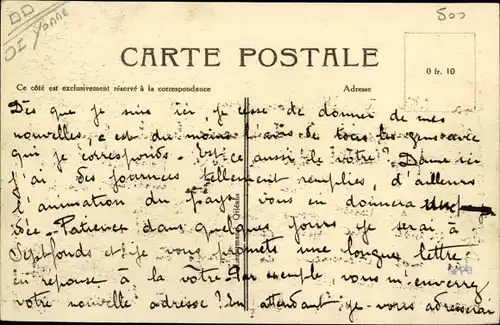 DD
Yonne
500
CARTE POSTALE
Ce côté est exclusivement réservé à la correspondance
Adresse
0 fr. 10
Dès que je suis ici, je cesse de donner de mes
nouvelles, c'est du moins l'avis de tous les gens avec
qui je corresponds - Est-ce aussi le vôtre? Dame ici
j'ai des journées tellement remplies, d'ailleurs
l'animation du pays vous en donnera une
idée - Patience dans quelques jours je serai à
Septfonds et je vous promets une longue lettre
en réponse à la vôtre. Par exemple vous m'enverrez
votre nouvelle adresse? En attendant je vous adresserai